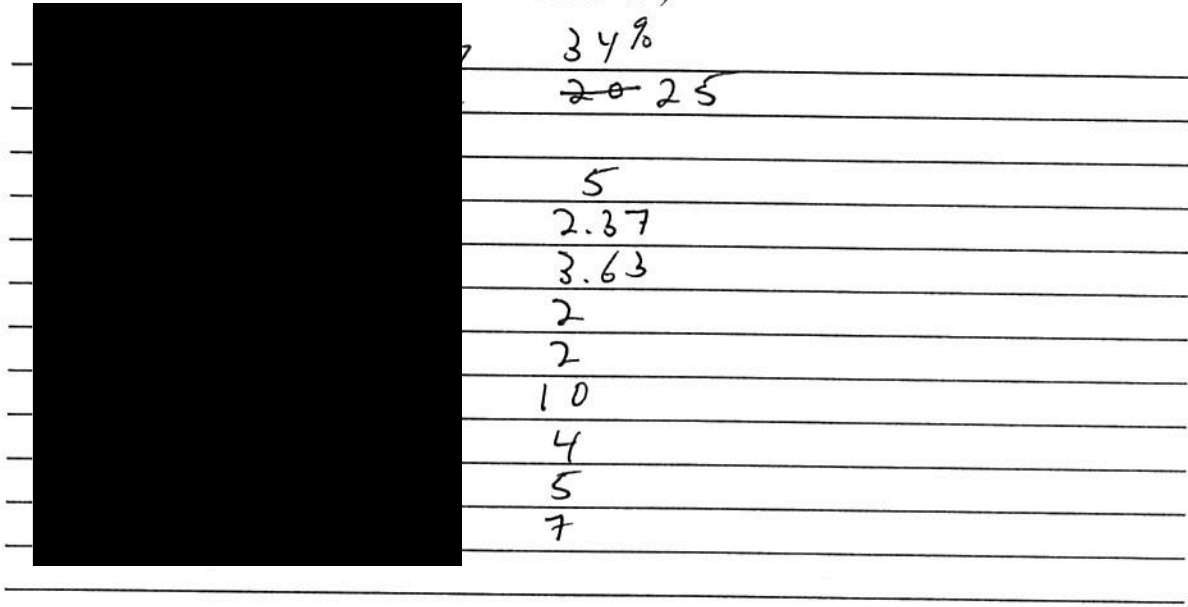 34%
20 25
5
2.37
3.63
2
2
10
4
5
7